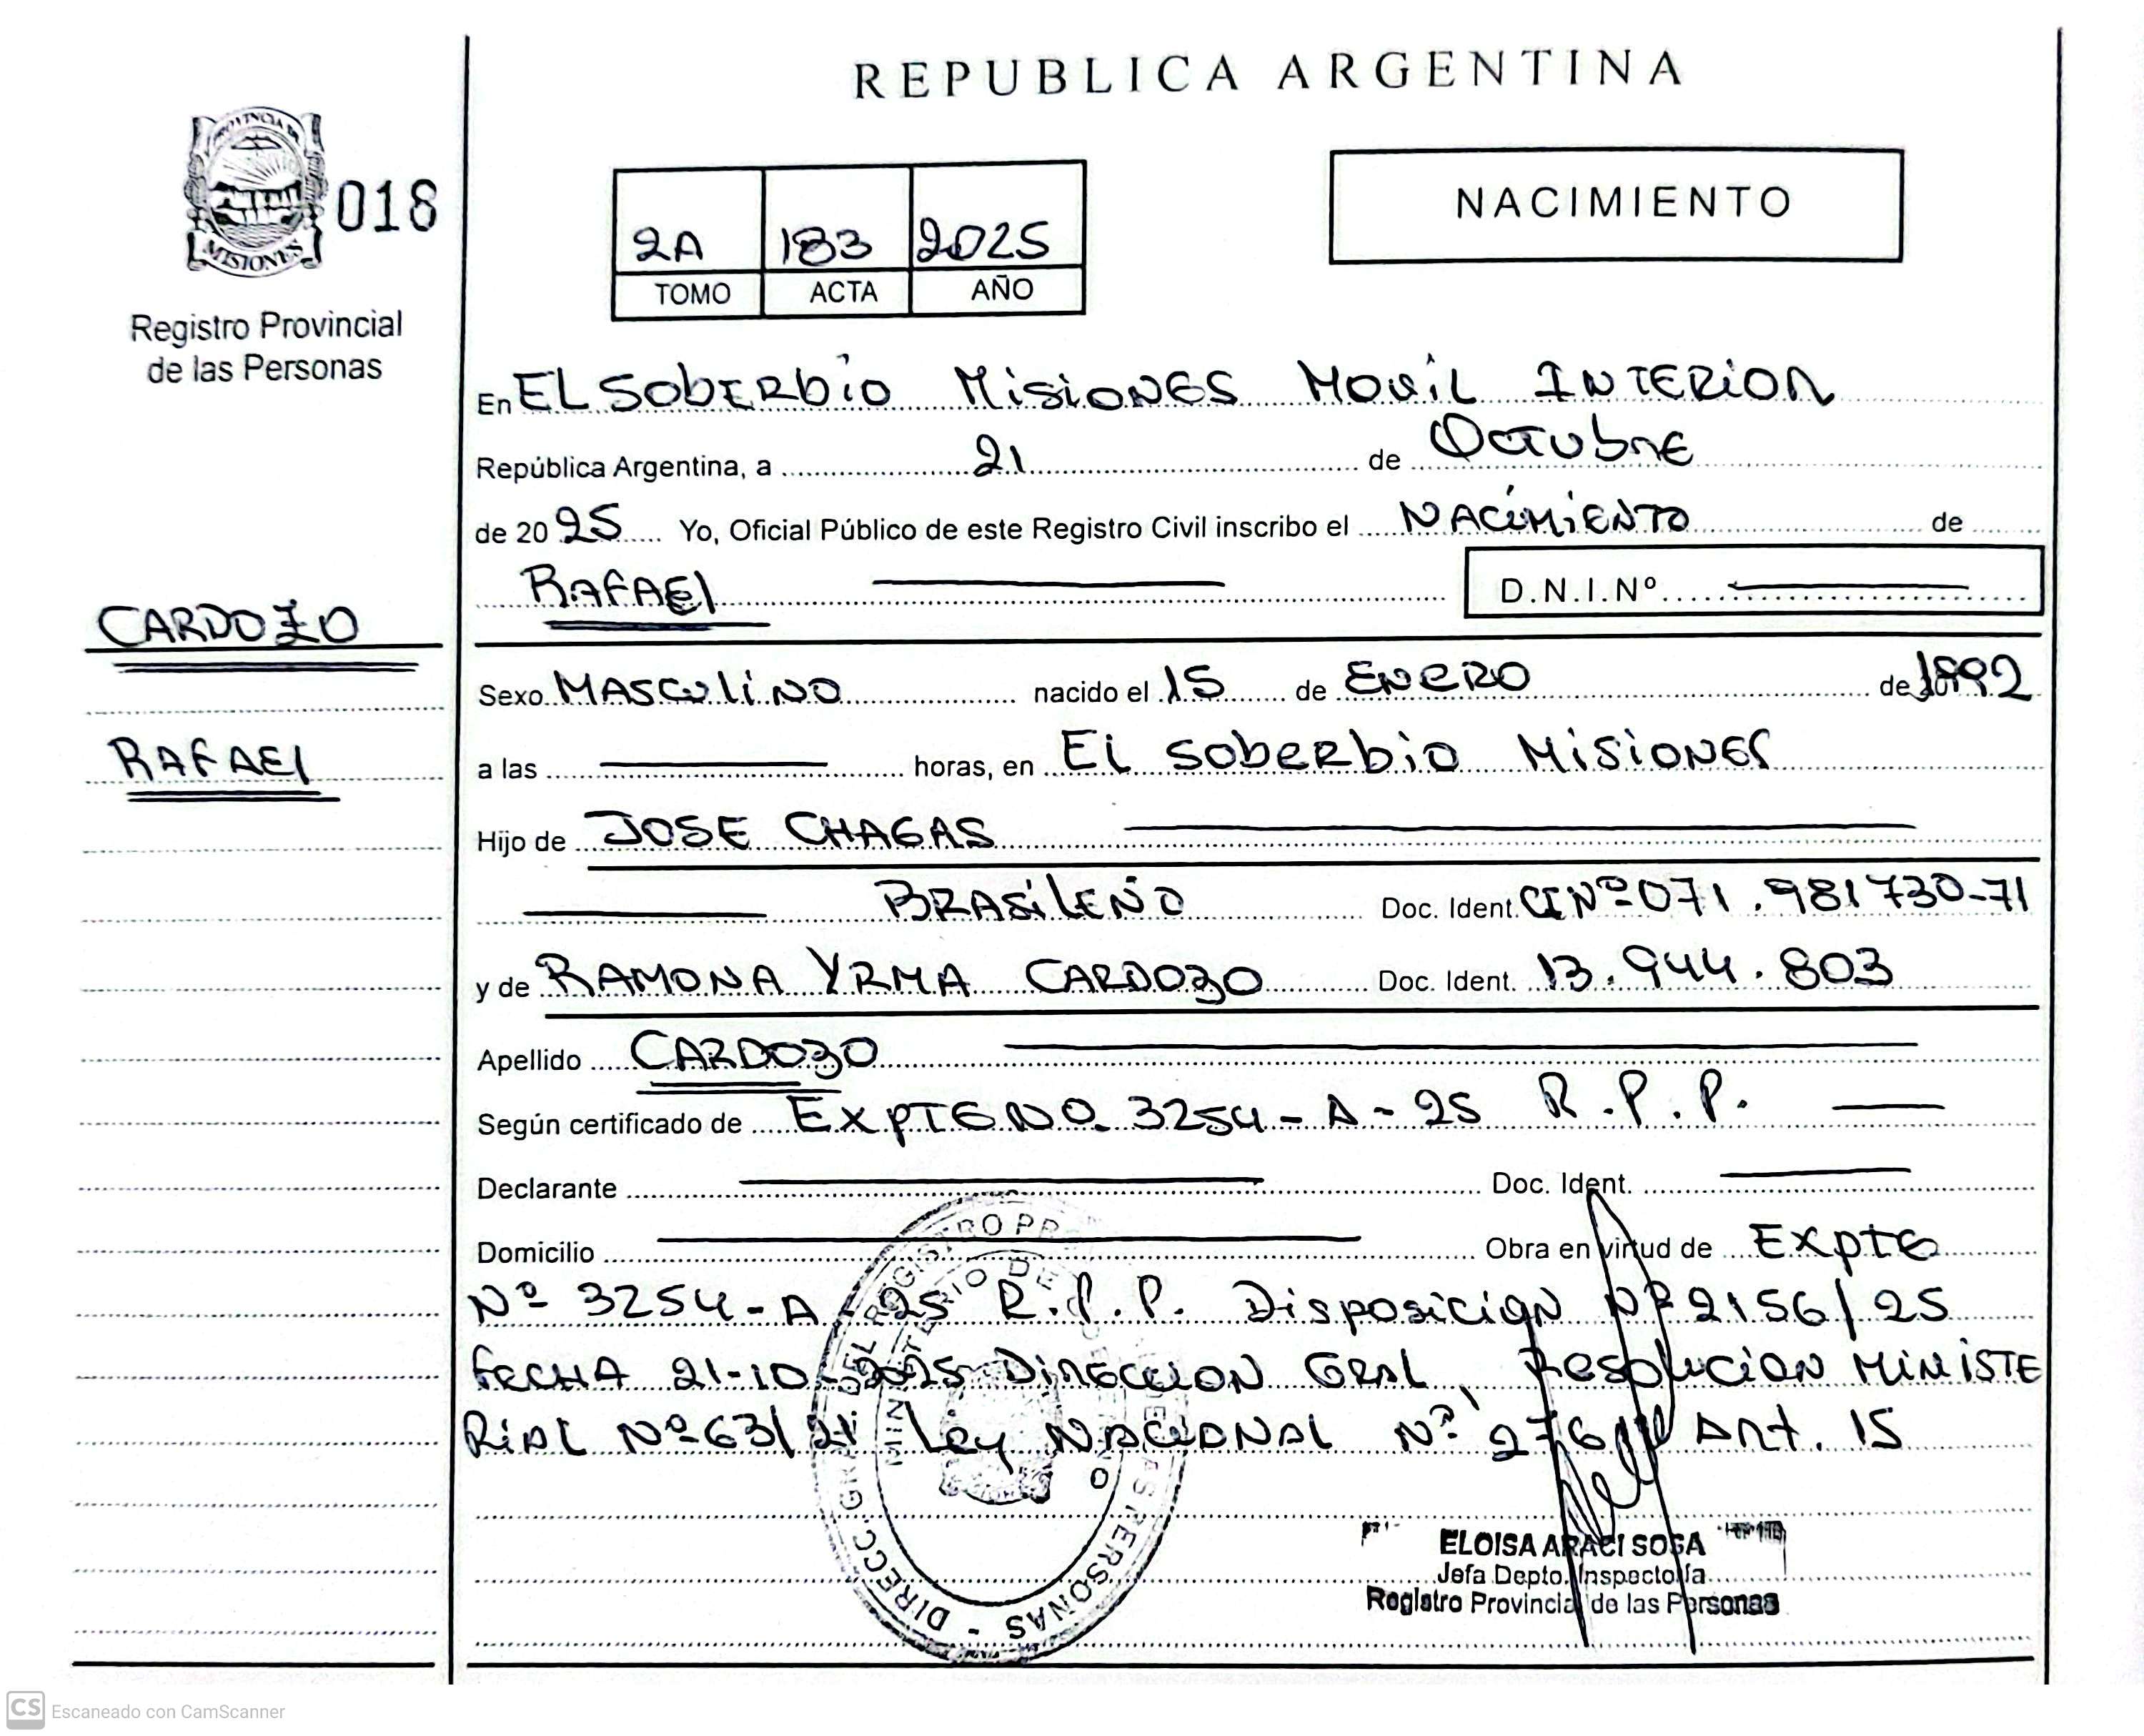 REPUBLICA ARGENTINA
PROVINCIA DE
MISIONES
018
Registro Provincial
de las Personas
NACIMIENTO
2A 183 2025
TOMO ACTA AÑO
En EL SobERbio MisiONES MOVIL INTERIOR
República Argentina, a 21 de Octubre
de 2025 Yo, Oficial Público de este Registro Civil inscribo el NACIMIENTO de
RAFAEL D.N.I.Nº
CARDOZO
RAFAEL
Sexo MASCULINO nacido el 15 de ENERO de 1992
a las horas, en El SobERbio MISIONES
Hijo de JOSE CHAGAS
BRASILEÑO Doc. Ident. CI Nº 071.981730-71
y de RAMONA YRMA CARDOZO Doc. Ident. 13.944.803
Apellido CARDOZO
Según certificado de EXPTE NO. 3254-A-25 R.P.P.
Declarante Doc. Ident.
Domicilio Obra en virtud de EXPTE
Nº 3254-A-25 R.P.P. Disposición Nº 2156/25
FECHA 21-10-2025 DIRECCION GRAL, RESOLUCION MINISTE
RIAL Nº 63/21 Ley NACIONAL Nº Art. 15
DIRECC. GRAL DEL REGISTRO PERSONAS
MINISTERIO DE
ELOISA ARACI SOSA
Jefa Depto. Inspectoría
Registro Provincial de las Personas
CS Escaneado con CamScanner